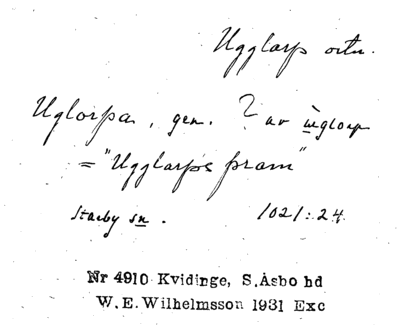 Ugglarp ortn.
Uglorpa, gen. ? av ùglorp
= "Ugglarps pram"
Starby sn. 1021:24
Nr 4910 Kvidinge, S.Åsbo hd
W.E.Wilhelmsson 1931 Exc